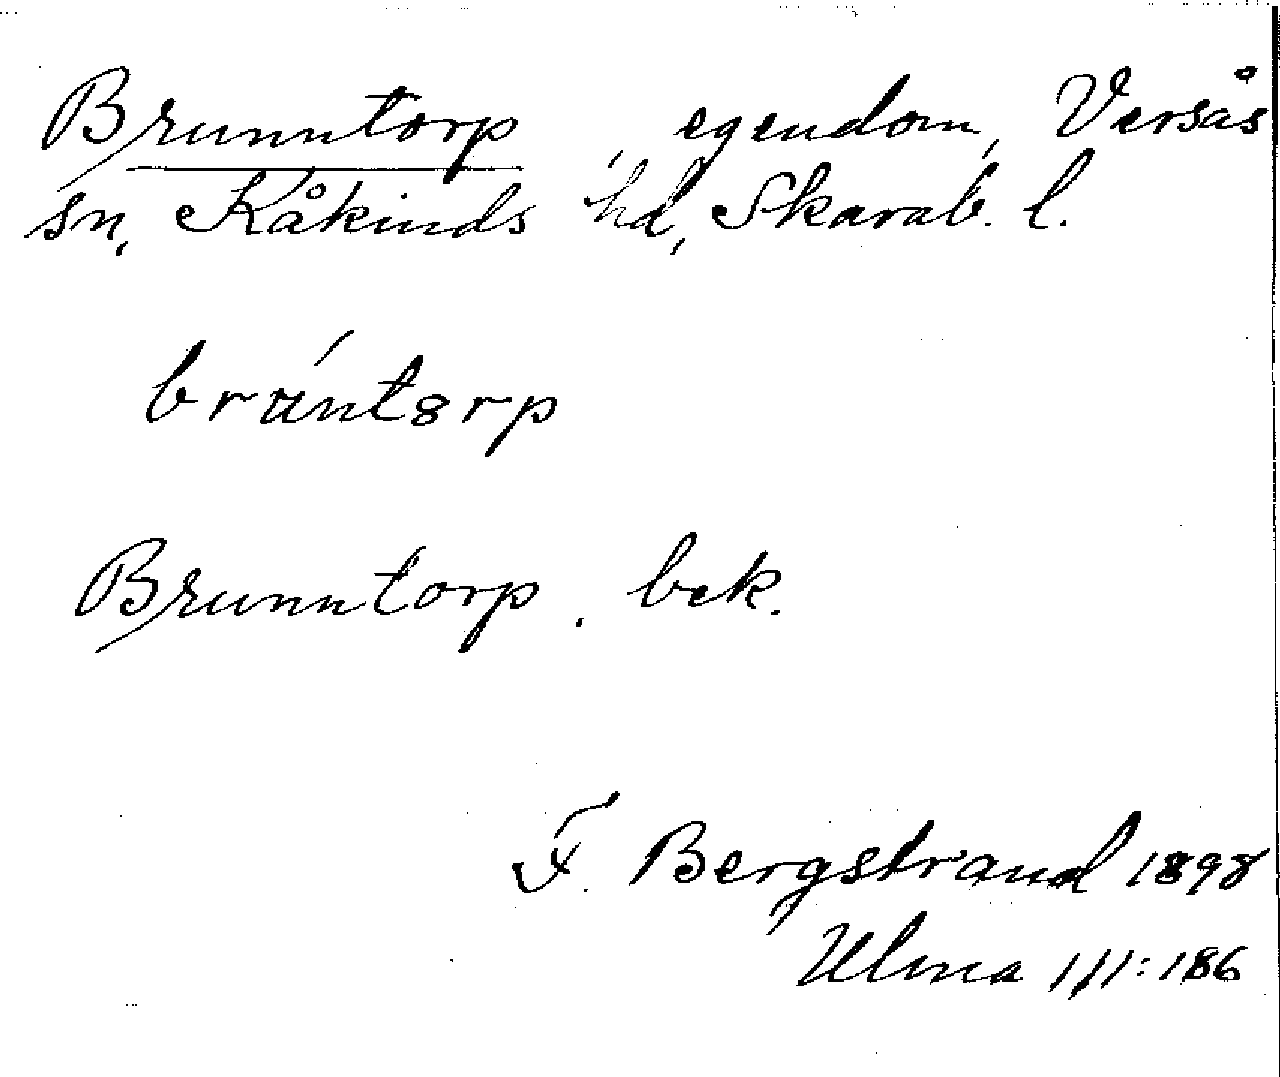 Brunntorp, egendom, Versås
sn, Kåkinds hd, Skarab. l.
brúntorp
Brunntorp. bek.
F. Bergstrand 1898
Ulma 111:186